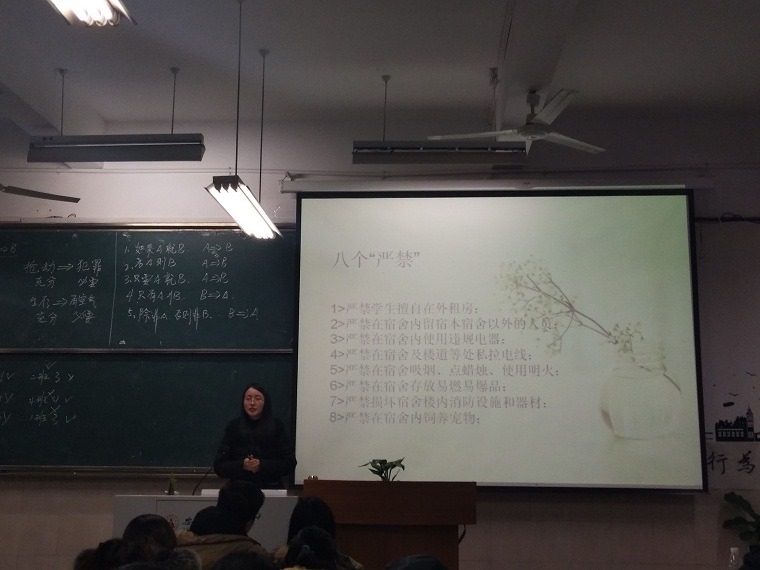 八个“严禁”
1>严禁学生擅自在外租房;
2>严禁在宿舍内留宿本宿舍以外的人员;
3>严禁在宿舍内使用违规电器;
4>严禁在宿舍及楼道等处私拉电线;
5>严禁在宿舍吸烟、点蜡烛、使用明火;
6>严禁在宿舍存放易燃易爆品;
7>严禁损坏宿舍楼内消防设施和器材;
8>严禁在宿舍内饲养宠物;
抢劫⇒犯罪
充分 必要
充分 必要
1. 如果A就B. A⇒B
2. 若A则B A⇒B
3. 只要A就B. A⇒B
4. 只有A才B. B⇒A.
5. 除非A, 否则非B. B⇒A.
行为